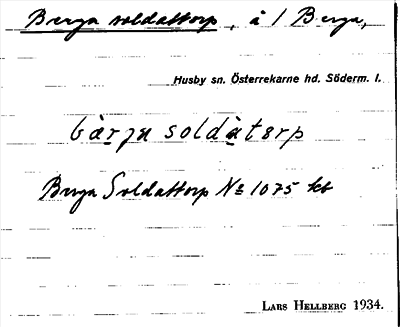 Berga soldattorp, å 1 Berga,
Husby sn. Österrekarne hd. Söderm. l.
bàrja soldàtɘrp
Berga Soldattorp No 1075 kb
LARS HELLBERG 1934.